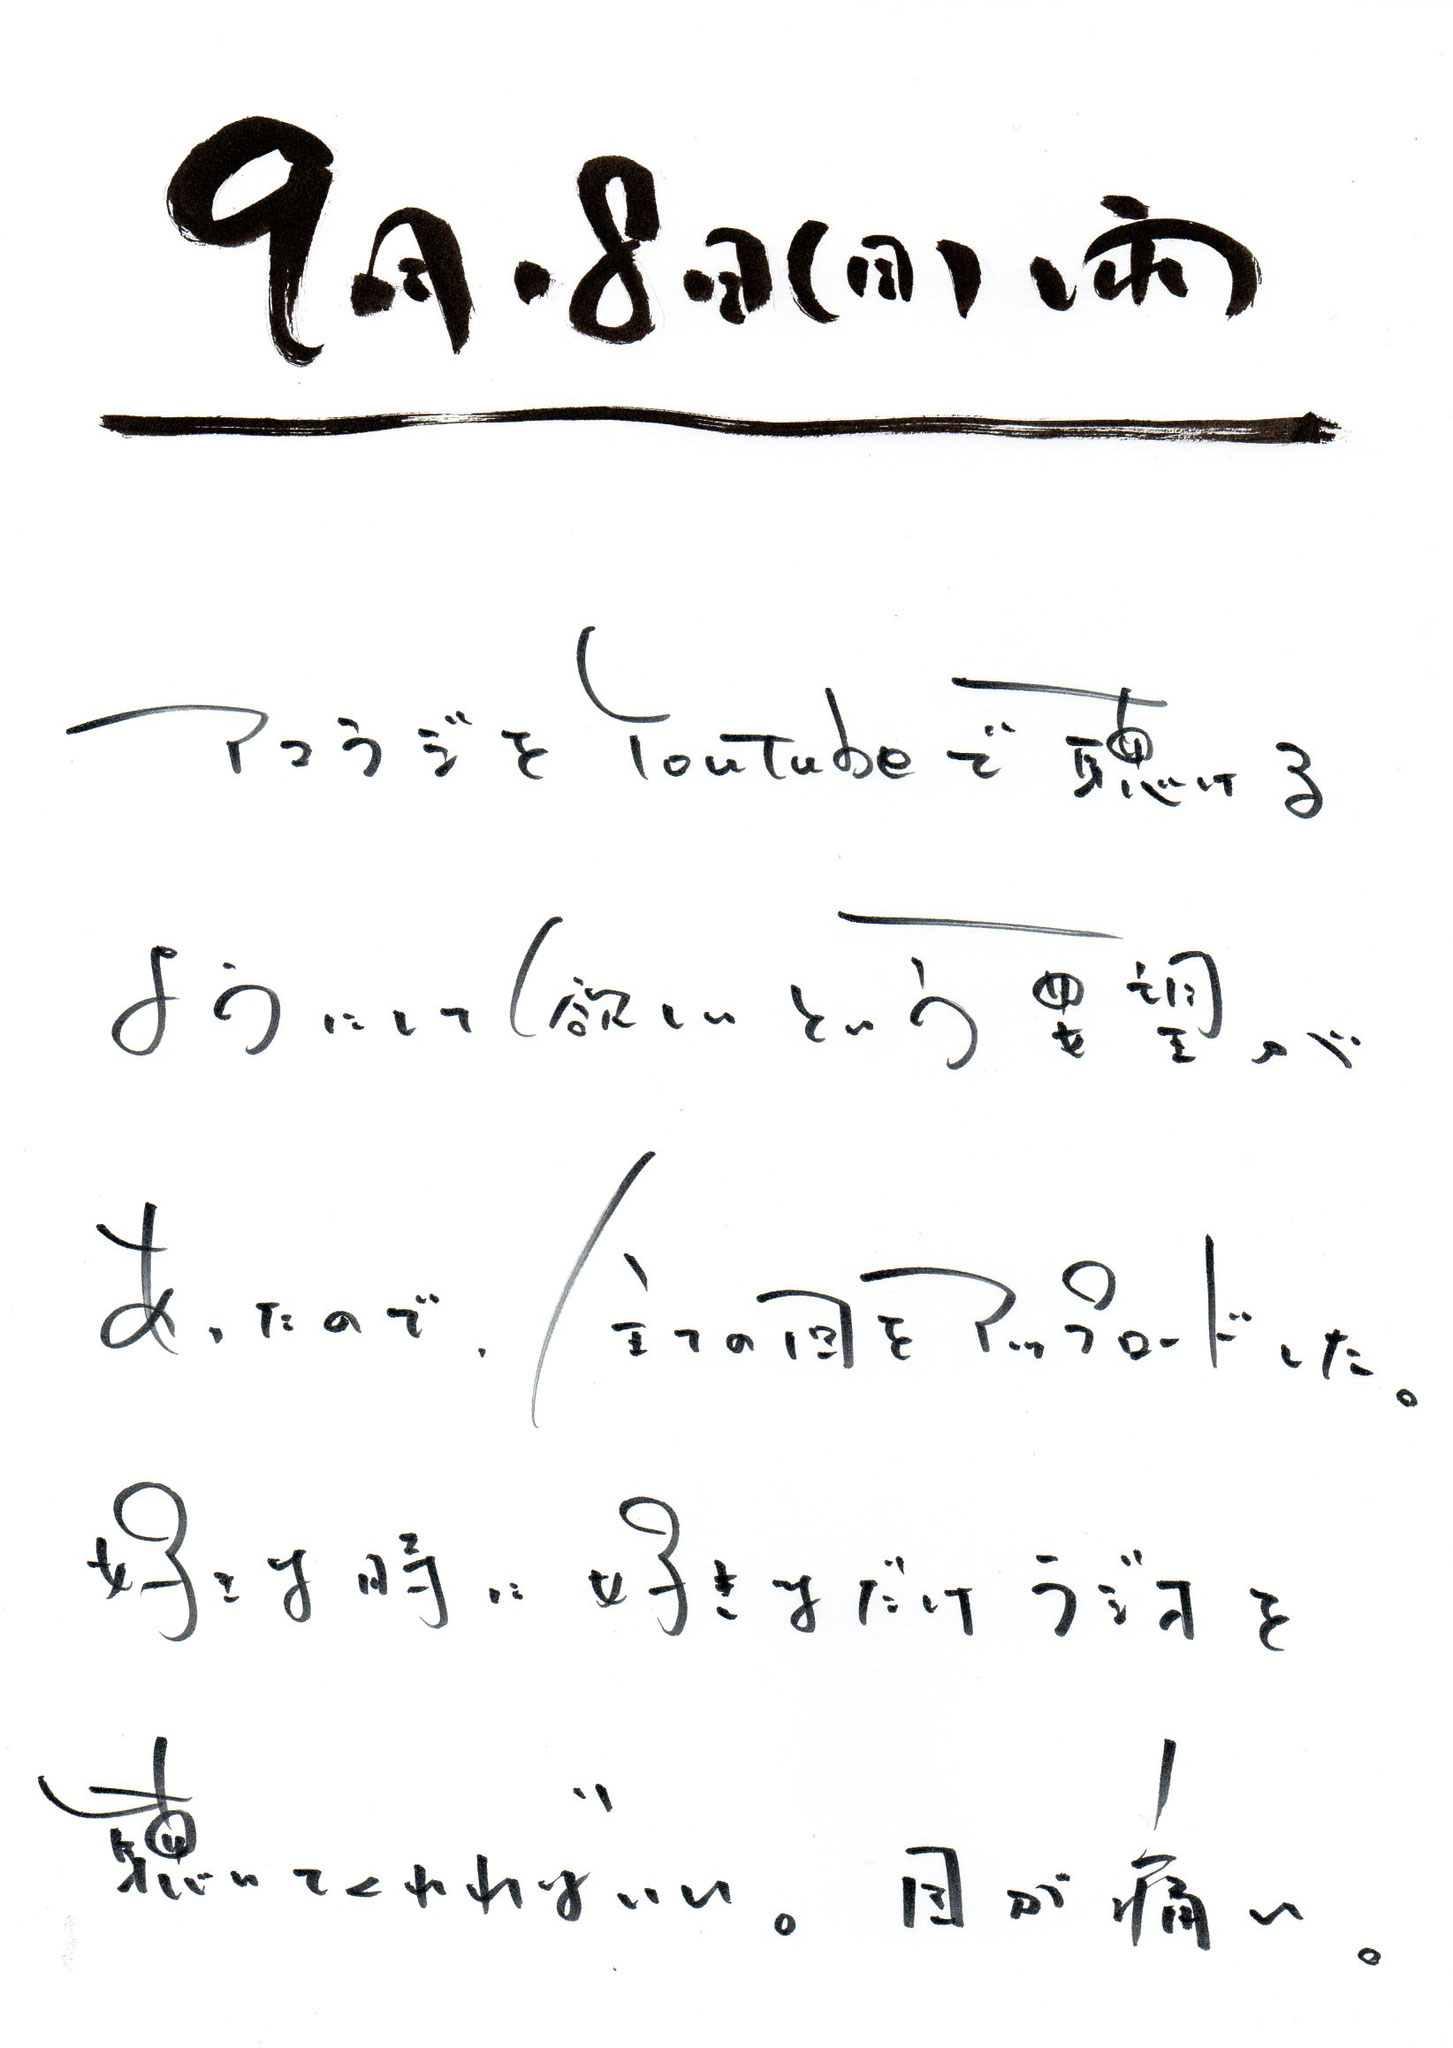 9月.8日(日)、雨
アコラジをYouTubeで聴ける
ようにして欲しいという要望が
あったので、全ての回をアップロードした。
好きな時に好きなだけラジオを
聴いてくれればいい。目が痛い。